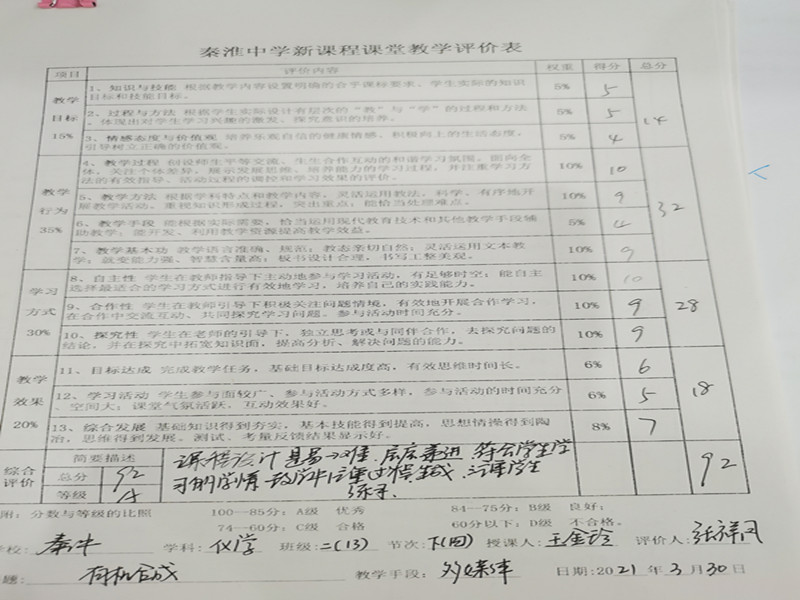 秦淮中学新课程课堂教学评价表
项目 评价内容 权重 得分 总分
教学目标15%
1、知识与技能 根据教学内容设置明确的合乎课标要求、学生实际的知识
目标和技能目标。 5% 5
2、过程与方法 根据学生实际设计有层次的“教”与“学”的过程和方法
，体现出对学生学习兴趣的激发、探究意识的培养。 5% 5
3、情感态度与价值观 培养乐观自信的健康情感，积极向上的生活态度，
引导树立正确的价值观。 5% 4
14
教学行为35%
4、教学过程 创设师生平等交流、生生合作互动的和谐学习氛围，面向全
体，关注个体差异，展示发展思维、培养能力的学习过程，并注重学习方
法的有效指导、活动过程的调控和学习效果的评价。 10% 10
5、教学方法 根据学科特点和教学内容，灵活运用教法，科学、有序地开
展教学活动，重视知识形成过程，突出重点，能恰当处理难点。 10% 9
6、教学手段 能根据实际需要，恰当运用现代教育技术和其他教学手段辅
助教学；能开发、利用教学资源提高教学效益。 5% 4
7、教学基本功 教学语言准确、规范；教态亲切自然；灵活运用文本教
学；应变能力强、智慧含量高；板书设计合理，书写工整美观。 10% 9
32
学习方式30%
8、自主性 学生在教师指导下主动地参与学习活动，有足够时空；能自主
选择最适合的学习方式进行有效地学习，培养自己的实践能力。 10% 10
9、合作性 学生在教师引导下积极关注问题情境，有效地开展合作学习，
在合作中交流互动、共同探究学习问题。参与活动时间充分。 10% 9
10、探究性 学生在老师的引导下，独立思考或与同伴合作，去探究问题的
结论，并在探究中拓宽知识面，提高分析、解决问题的能力。 10% 9
28
教学效果20%
11、目标达成 完成教学任务，基础目标达成度高，有效思维时间长。 6% 6
12、学习活动 学生参与面较广、参与活动方式多样，参与活动的时间充分
、空间大；课堂气氛活跃，互动效果好。 6% 5
13、综合发展 基础知识得到夯实，基本技能得到提高，思想情操得到陶
冶，思维得到发展。测试、考量反馈结果显示好。 8% 7
18
综合评价 简要描述
总分 92
等级 A
课程设计 易 难，层层递进，符合学生学
习的学情 教学中注重过程生成，注重学生
练习.
92
附：分数与等级的比照 100—85分：A级 优秀 84—75分：B级 良好；
74—60分：C级 合格 60分以下：D级 不合格。
学校：秦中 学科：化学 班级：二(13) 节次：下(四) 授课人：王金玲 评价人：张祥风
题：有机合成 教学手段：多媒体 日期：2021年3月30日